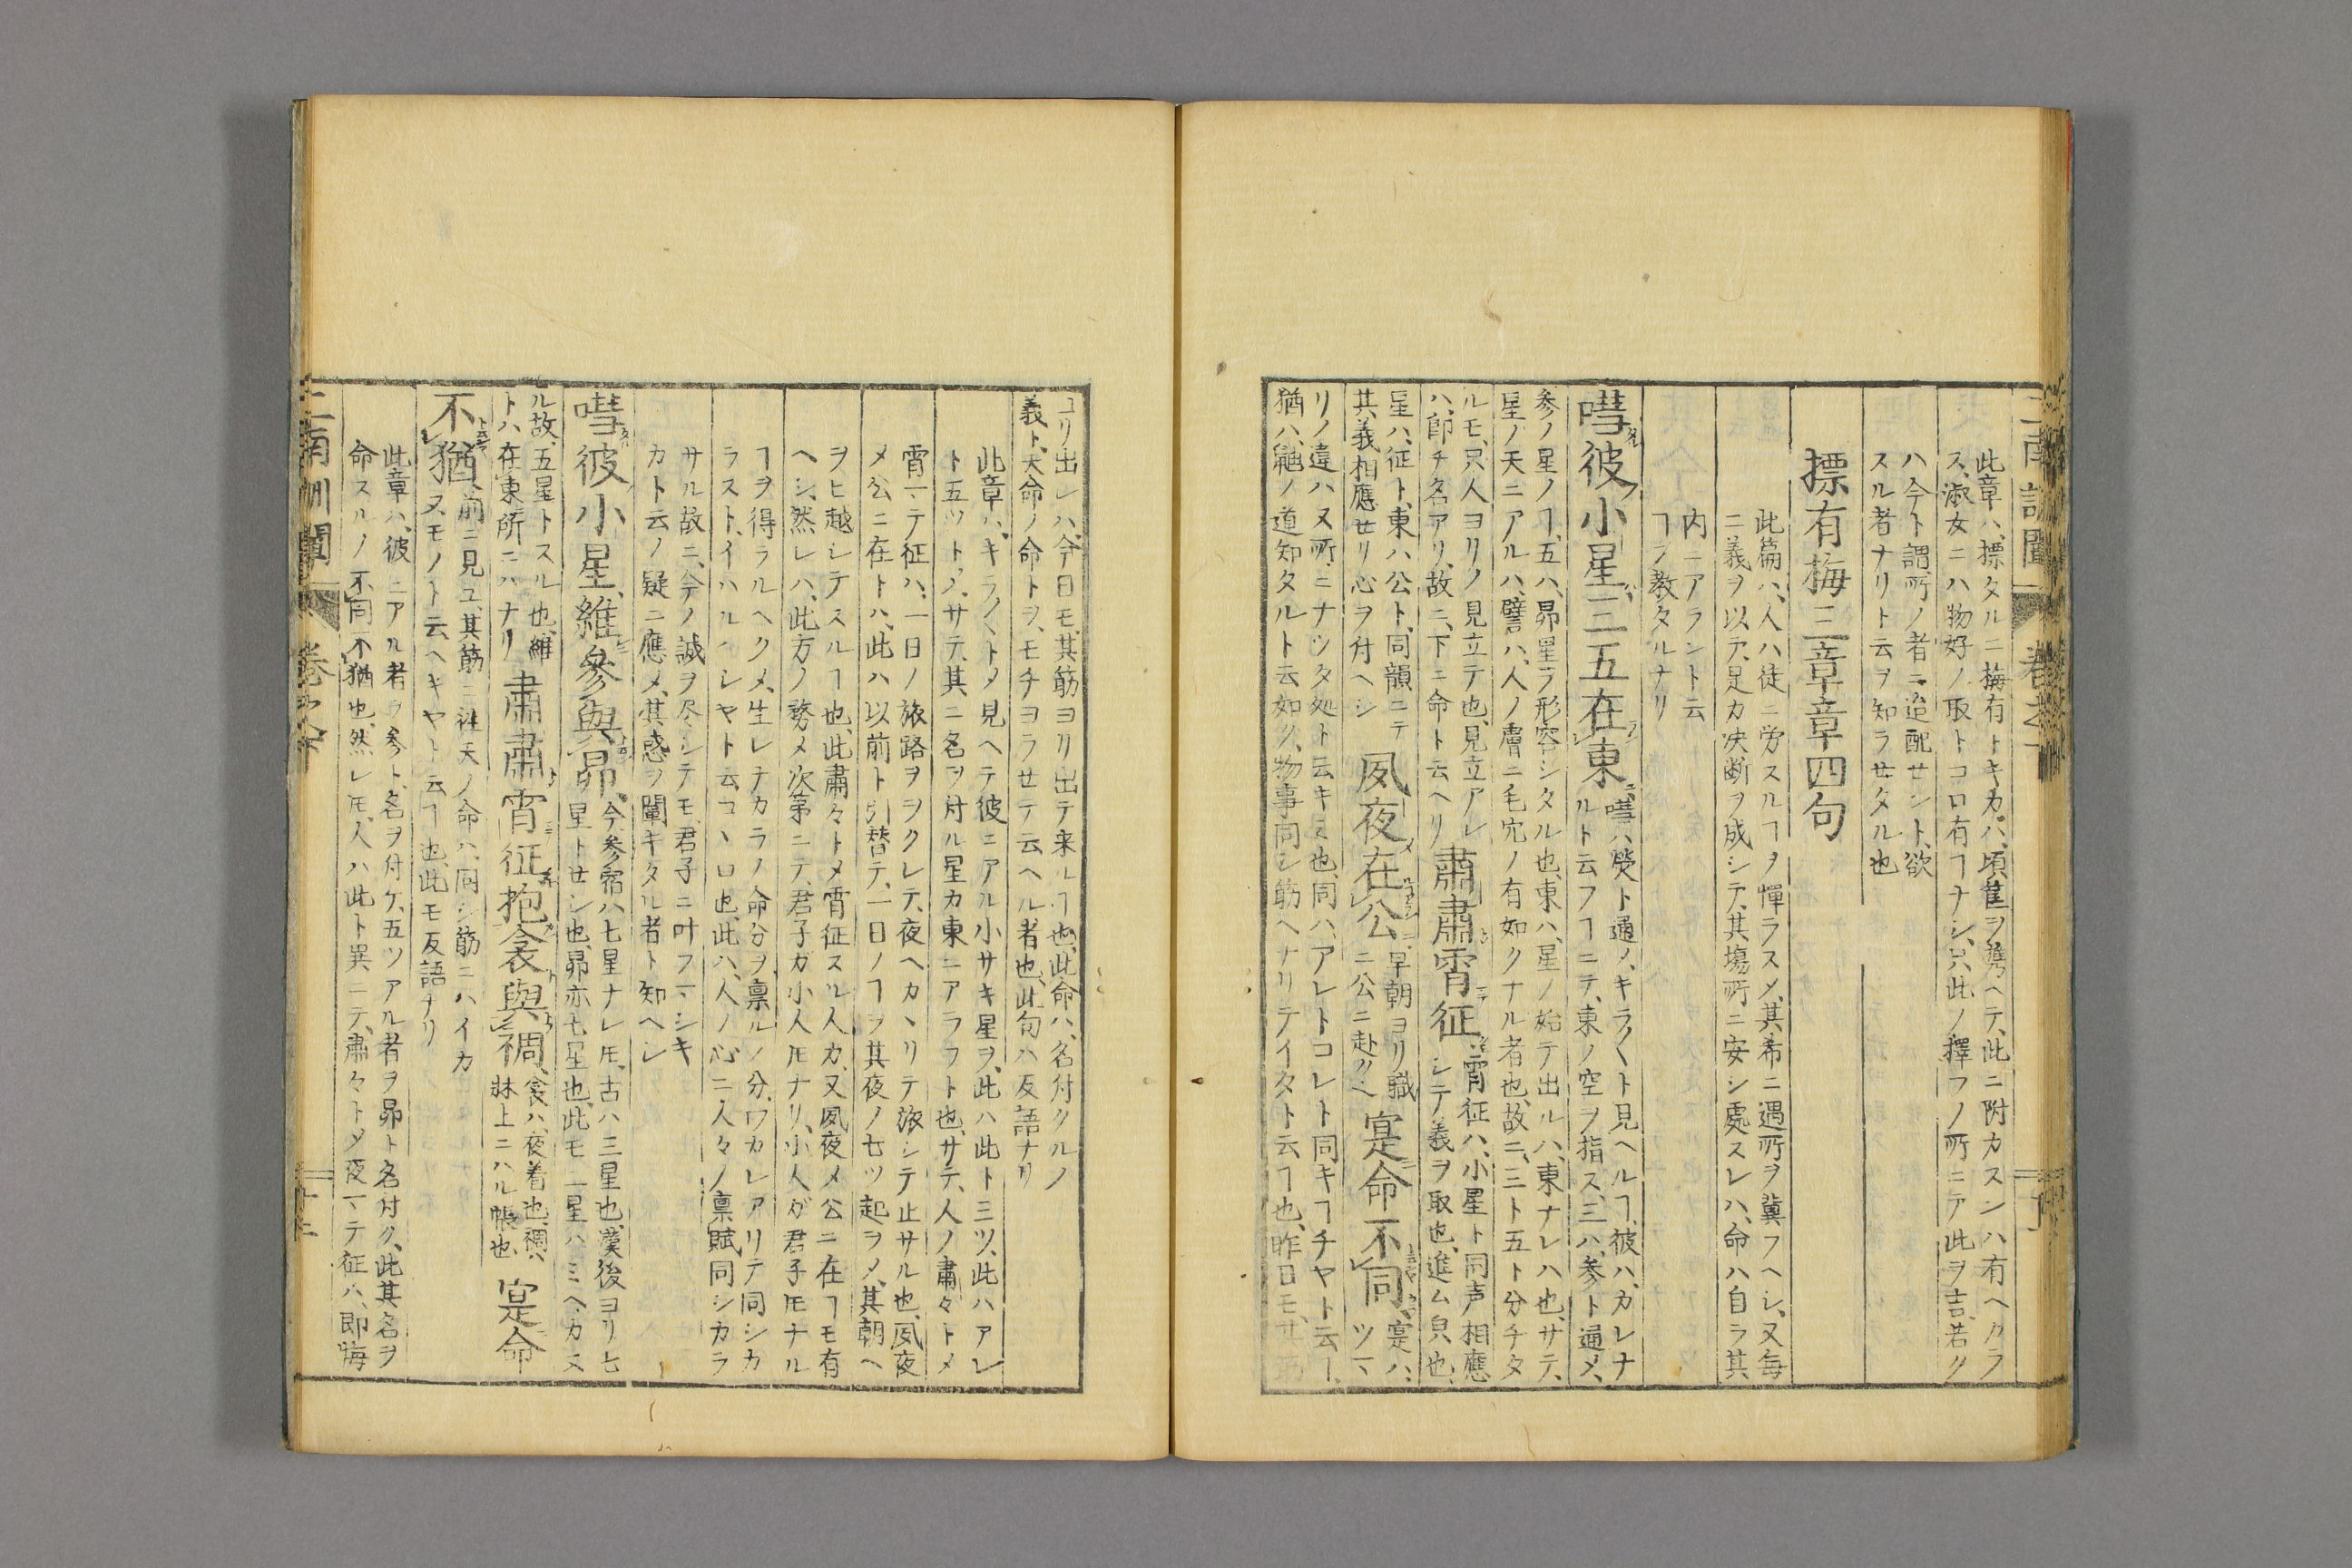 此章ハ、摽タルニ梅有トキカハ、頃筐ヲ携ヘテ、此ニ附カスンハ有ヘクラ
ス、淑女ニハ物好ノ取トコロ有ヿナシ、只此ノ擇フノ所ニテ此ヲ吉、若ク
ハ今ト謂所ノ者ニ迨配セント、欲
スル者ナリト云ヲ知ラセタル也
摽有梅三章章四句
此篇ハ、人ハ徒ニ労スルヿヲ憚ラスメ、其希ニ遇所ヲ冀フヘシ、又毎
ニ義ヲ以テ、足カ决断ヲ成シテ、其塲所ニ安シ處スレハ、命ハ自ラ其
内ニアラント云
ヿヲ教タルナリ
嘒彼小星三五在東
嘒ハ㷫ト通ノ、キラ〱ト見ヘルヿ、彼ハ、カレナ
ルト云フヿニテ、東ノ空ヲ指ス、三ハ、参ト通メ、
参ノ星ノヿ、五ハ、昴星ヲ形容シタル也、東ハ、星ノ始テ出ルハ、東ナレハ也、サテ、
星ノ天ニアルハ、譬ハ、人ノ膚ニ毛穴ノ有如クナル者也、故ニ、三ト五ト分チタ
ルモ、只人ヨリノ見立テ也、見立アレ
ハ、即チ名アリ、故ニ、下ニ命ト云ヘリ
肅肅宵征
宵征ハ、小星ト同声相應
シテ義ヲ取也、進ム皃也、
星ハ、征ト、東ハ公ト、同韻ニテ
其義相應セリ心ヲ付ヘシ
夙夜在公
早朝ヨリ職
ニ公ニ赴クヘ
寔命不同
寔ハ、
ツマヽ
リノ違ハヌ所ニナツタ処ト云キミ也、同ハ、アレトコレト同キヿチヤト云ー、
猶ハ、鼬ノ道知タルト云如ク、物事同シ筋ヘナリテイタト云ヿ也、昨日モ
ヨリ出レハ、今日モ其筋ヨリ出テ来ルヿ也、此命ハ、名付クルノ
義ト、天命ノ命トヲ、モチヨラセテ云ヘル者也、此句ハ反語ナリ
此章ハ、キラ〱トメ見ヘテ彼ニアル小サキ星ヲ、此ハ此ト三ツ、此ハアレ
ト五ツト〆、サテ、其ニ名ヲ付ル星カ東ニアラフト也、サテ、人ノ肅々トメ
宵マテ征ハ、一日ノ旅路ヲヲクレテ、夜ヘカヽリテ旅シテ止サル也、夙夜
メ公ニ在トハ、此ハ以前ト引替テ、一日ノヿヲ其夜ノ七ツ起ヲメ、其朝ヘ
ヲヒ越シテスルヿ也、此肅々トメ宵征スル人カ、又夙夜メ公ニ在ヿモ有
ヘシ、然レハ、此方ノ務メ次第ニテ、君子ガ小人𪜈ナリ、小人ガ君子𪜈ナル
ヿヲ得ラルヘクメ、生レナカラノ命分ヲ、禀ルノ分、ワカレアリテ同シカ
ラスト、イハルハシヤト云コヽロ也、此ハ、人ノ心ニ人々ノ禀賦同シカラ
サル故ニ、今ノ誠ヲ尽シテモ、君子ニ叶フマシキ
カト云ノ疑ニ應メ、其惑ヲ闡キタル者ト知ヘシ
嘒彼小星、維參與昴
今参宿ハ七星ナレ𪜈、古ハ三星也、漢後ヨリ七
星トセシ也、昴亦七星也、此モ二星ハミヘカヌ
ル故、五星トスル也、維
トハ在東所ニハナリ
肅肅宵征抱衾與裯
衾ハ、夜着也、裯ハ
牀上ニハル帳也
寔命
不猶
前ニ見ユ、其筋ニ社天ノ命ハ、同シ筋ニハイカ
ヌモノト云ヘキヤト云ヿ也、此モ反語ナリ
此章ハ、彼ニアル者ヲ参ト、名ヲ付ケ、五ツアル者ヲ昴ト名付ク、此其名ヲ
命スルノ不同不猶也、然レ𪜈、人ハ此ト異ニテ、肅々トメ夜マテ征ハ、即悔